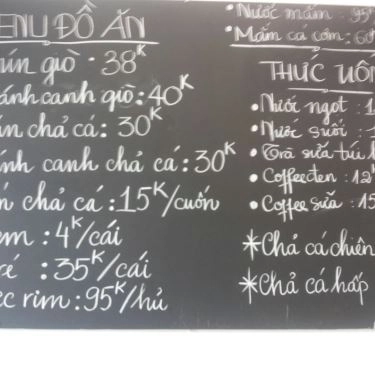 ENU ĐỒ ĂN
ún giò · 38K
ánh canh giò: 40K
ún chả cá: 30K
ánh canh chả cá: 30K
n chả cá: 15K/cuốn
em: 4K/cái
é: 35K/cái
ốc rim: 95K/hủ
• Nước mắm: 95
• Mắm cá cơm: 60
THỨC UỐN
• Nước ngọt: 1
• Nước suối: 1
• Trà sữa túi l
• Coffee đen: 12K
• Coffee sữa: 15
*Chả cá chiên
*Chả cá hấp